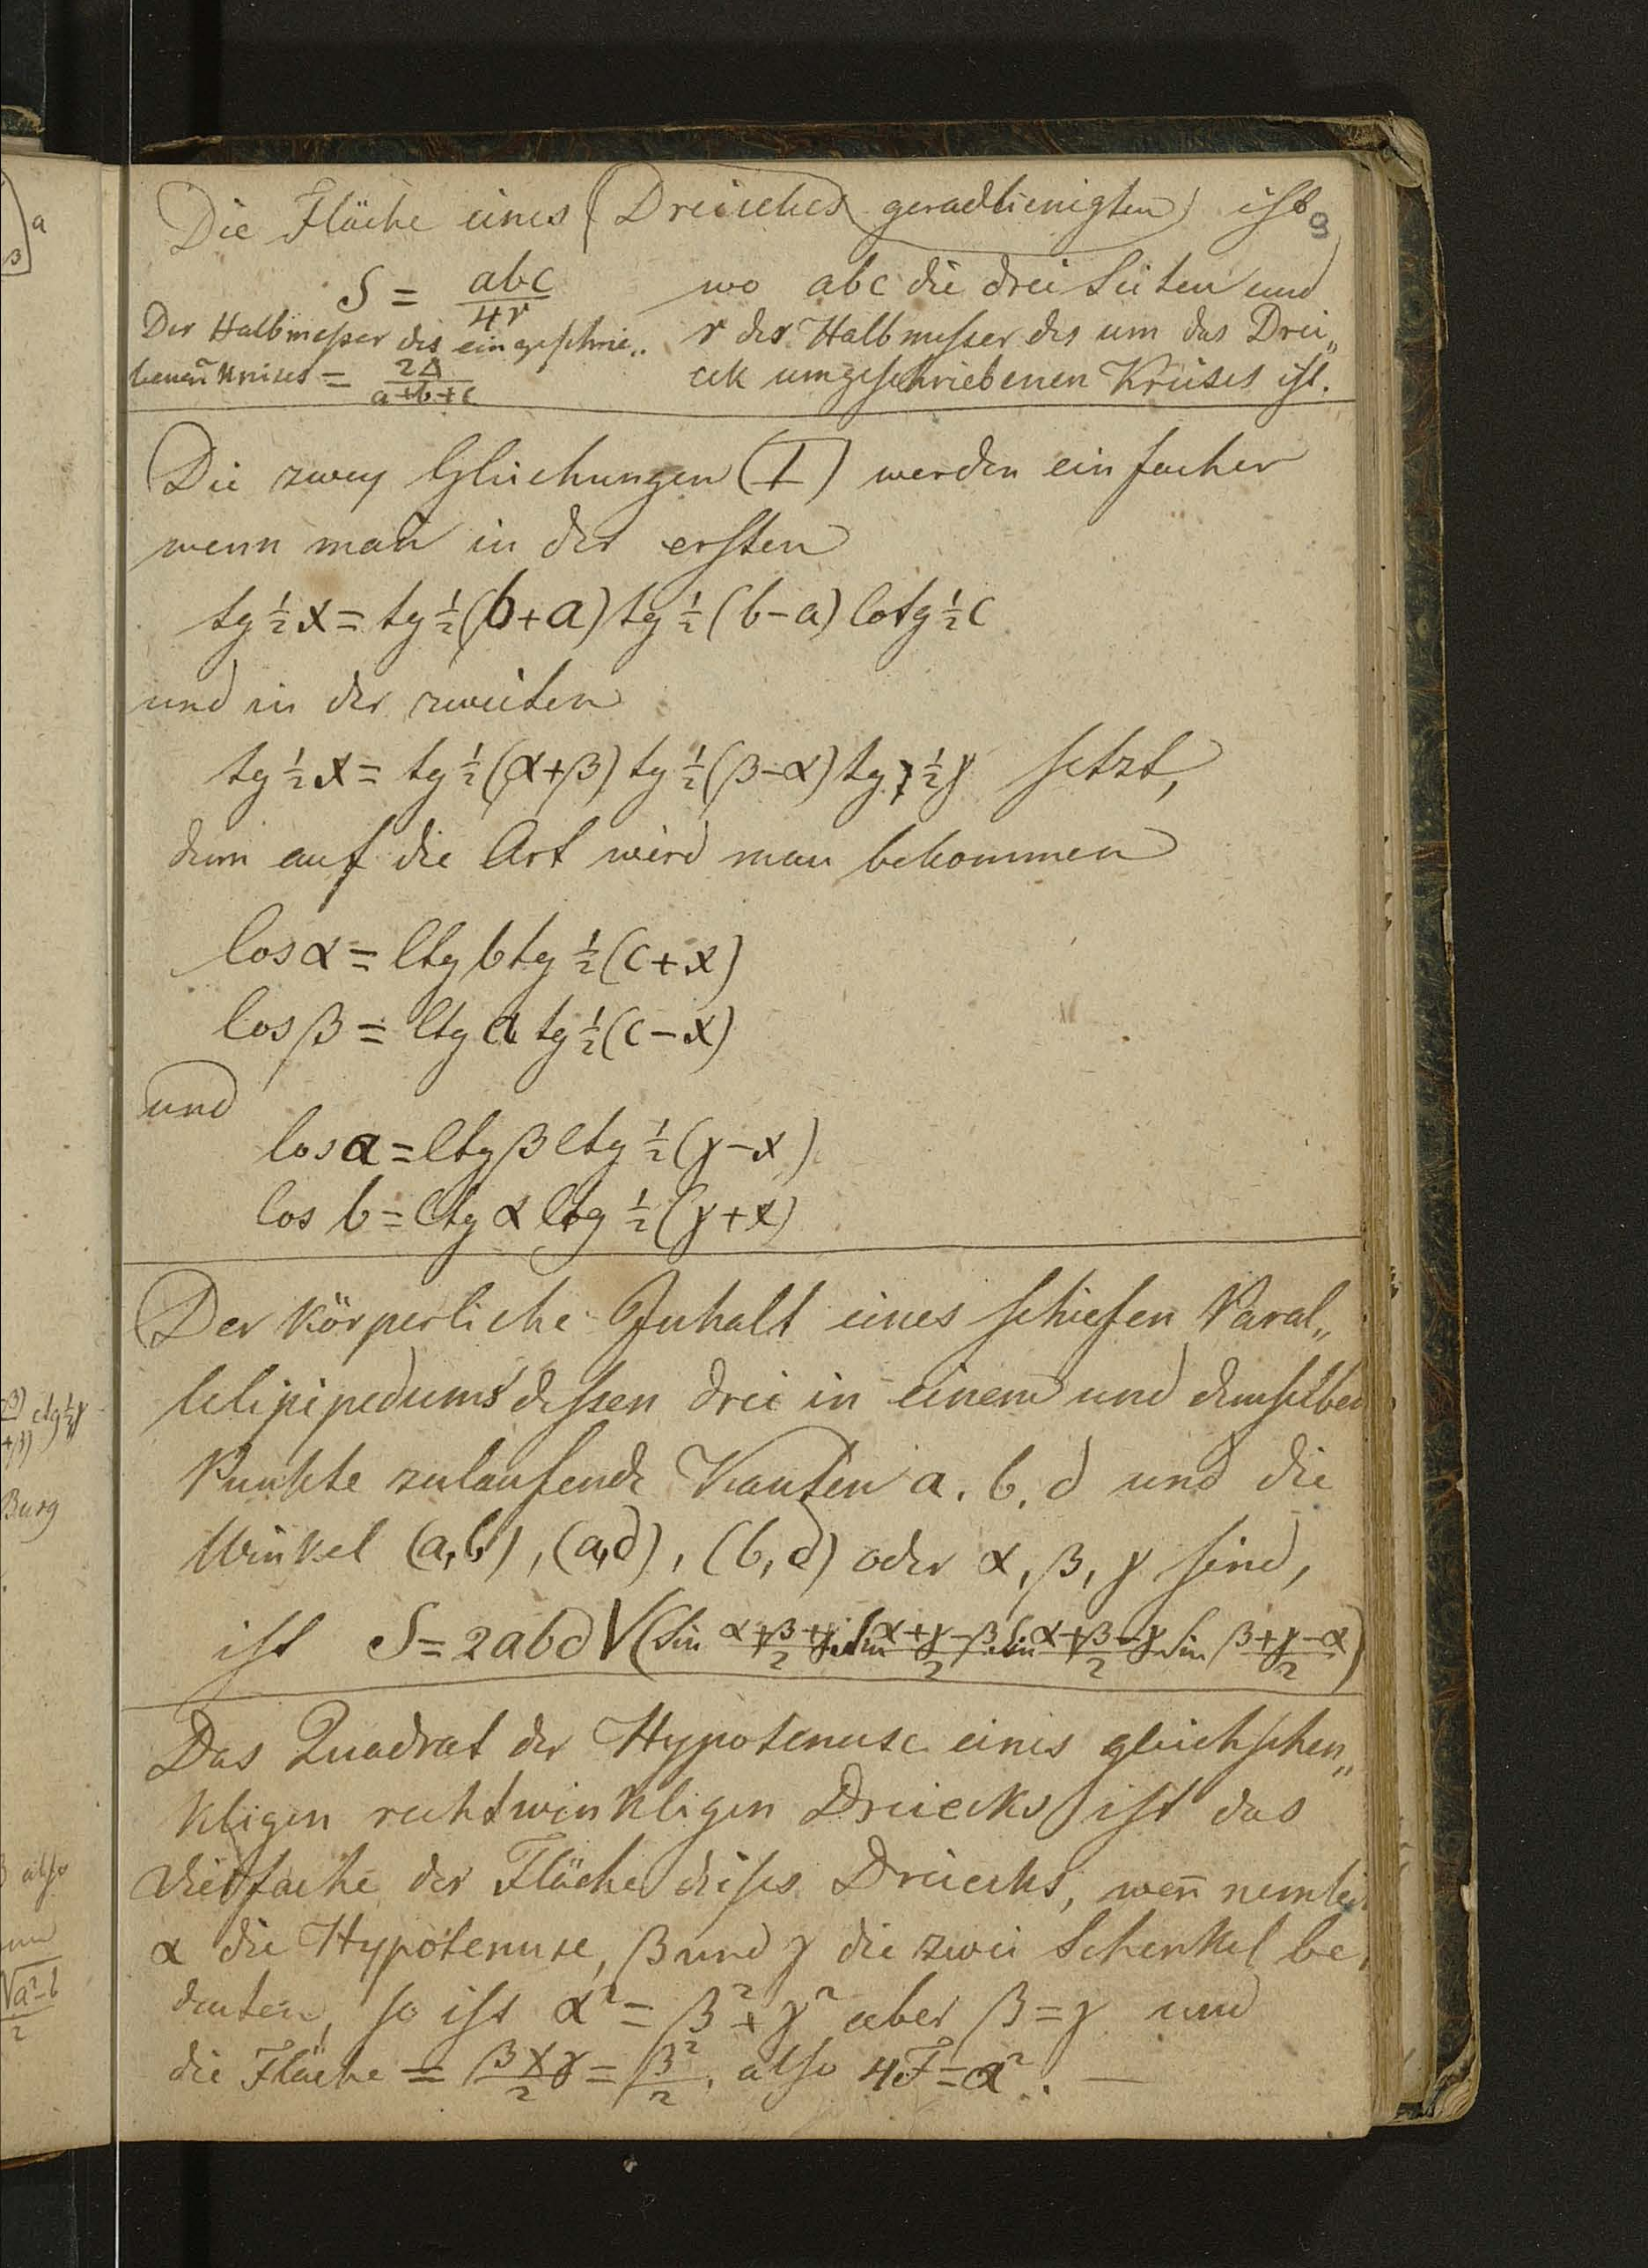 Die Fläche eines (Dreieckes geradlienigten) ist
9
S = abc/4r wo abc die drei Seiten und
Der Halbmeßer des eingeschrie„ r der Halbmesser des um das Drei„
benen Kreises = 2Δ/(a+b+c) eck umgeschriebenen Kreises ist.
Die zwey Gleichungen (I) werden einfacher
wenn man in der ersten
tg ½x = tg ½(b+a) tg ½(b−a) Cotg ½c
und in der zweiten
tg ½x = tg ½(α+β) tg ½(β−α) tg ½γ setzt,
denn auf die Art wird man bekommen
Cos α = Ctg b tg ½(c+x)
Cos β = Ctg a tg ½(c−x)
und
Cos a = Ctg β Ctg ½(γ−x)
Cos b = Ctg α Ctg ½(γ+x)
Der körperliche Inhalt eines schiefen Paral„
lelipipedums dessen drei in einem und demselben
Punkte zulaufende Kanten a, b, d und die
Winkel (a,b), (a,d), (b,d) oder α, β, γ sind,
ist S = 2abd √(Sin (α+β+γ)/2 Sin (α+γ−β)/2 Sin (α+β−γ)/2 Sin (β+γ−α)/2)
Das Quadrat der Hypotenuse eines gleichschen„
kligen rechtwinkligen Dreiecks ist das
vierfache der Fläche dieses Dreiecks, wen̄ nemlich
α die Hypotenuse, β und γ die zwei Schenkel be„
deuten, so ist α² = β² + γ² aber β = γ und
die Fläche = β×γ/2 = β²/2, also 4F = α². —
a
β
ctg ½γ
Burg
also
√a²−b
2